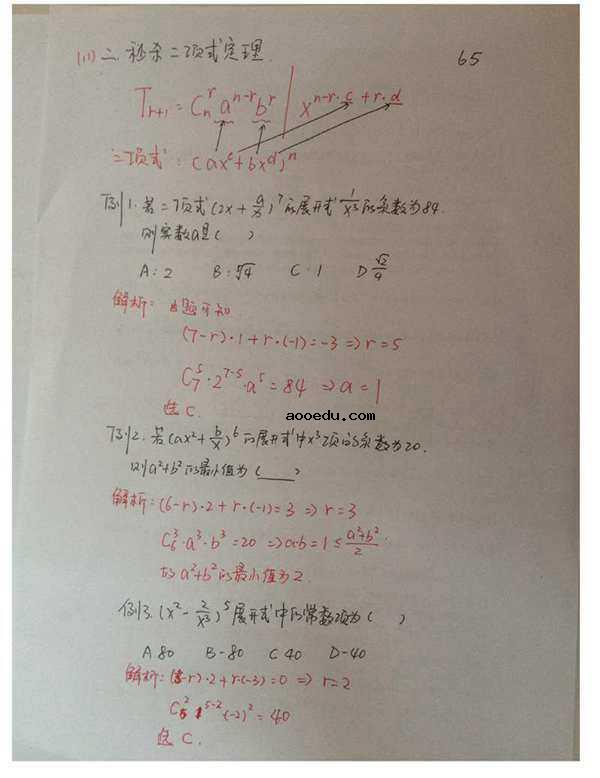 (11) 二. 秒杀二项式定理. 65
T_{r+1} = C_n^r a^{n-r} b^r | x^{n-r·c+r·d}
二项式: (ax^c+bx^d)^n
例1. 若二项式(2x+a/x)^7的展开式1/x^3的系数为84.
则实数a是( )
A: 2 B: ⁵√4 C·1 D √2/4
解析: 由题可知
(7-r)·1+r·(-1)=-3 ⇒ r=5
C_7^5·2^{7-5}·a^5=84 ⇒ a=1
选C.
aooedu.com
例2. 若(ax^2+b/x)^6的展开式中x^3项的系数为20.
则a^2+b^2的最小值为(____)
解析: (6-r)·2+r·(-1)=3 ⇒ r=3
C_6^3·a^3·b^3=20 ⇒ a·b=1≤(a^2+b^2)/2
故a^2+b^2的最小值为2.
例3. (x^2-2/x^3)^5展开式中的常数项为( )
A 80 B-80 C 40 D-40
解析: (5-r)·2+r·(-3)=0 ⇒ r=2
C_5^2 1^{5-2}(-2)^2=40
选C.